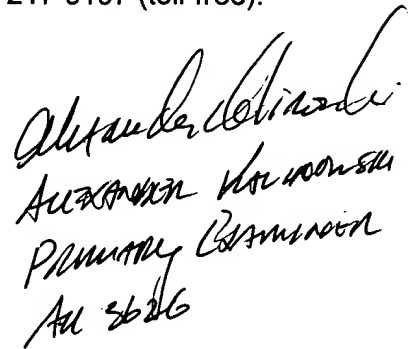 217-9197 (toll-free).
Alexander Kalinowski
ALEXANDER KALINOWSKI
PRIMARY EXAMINER
AU 3626